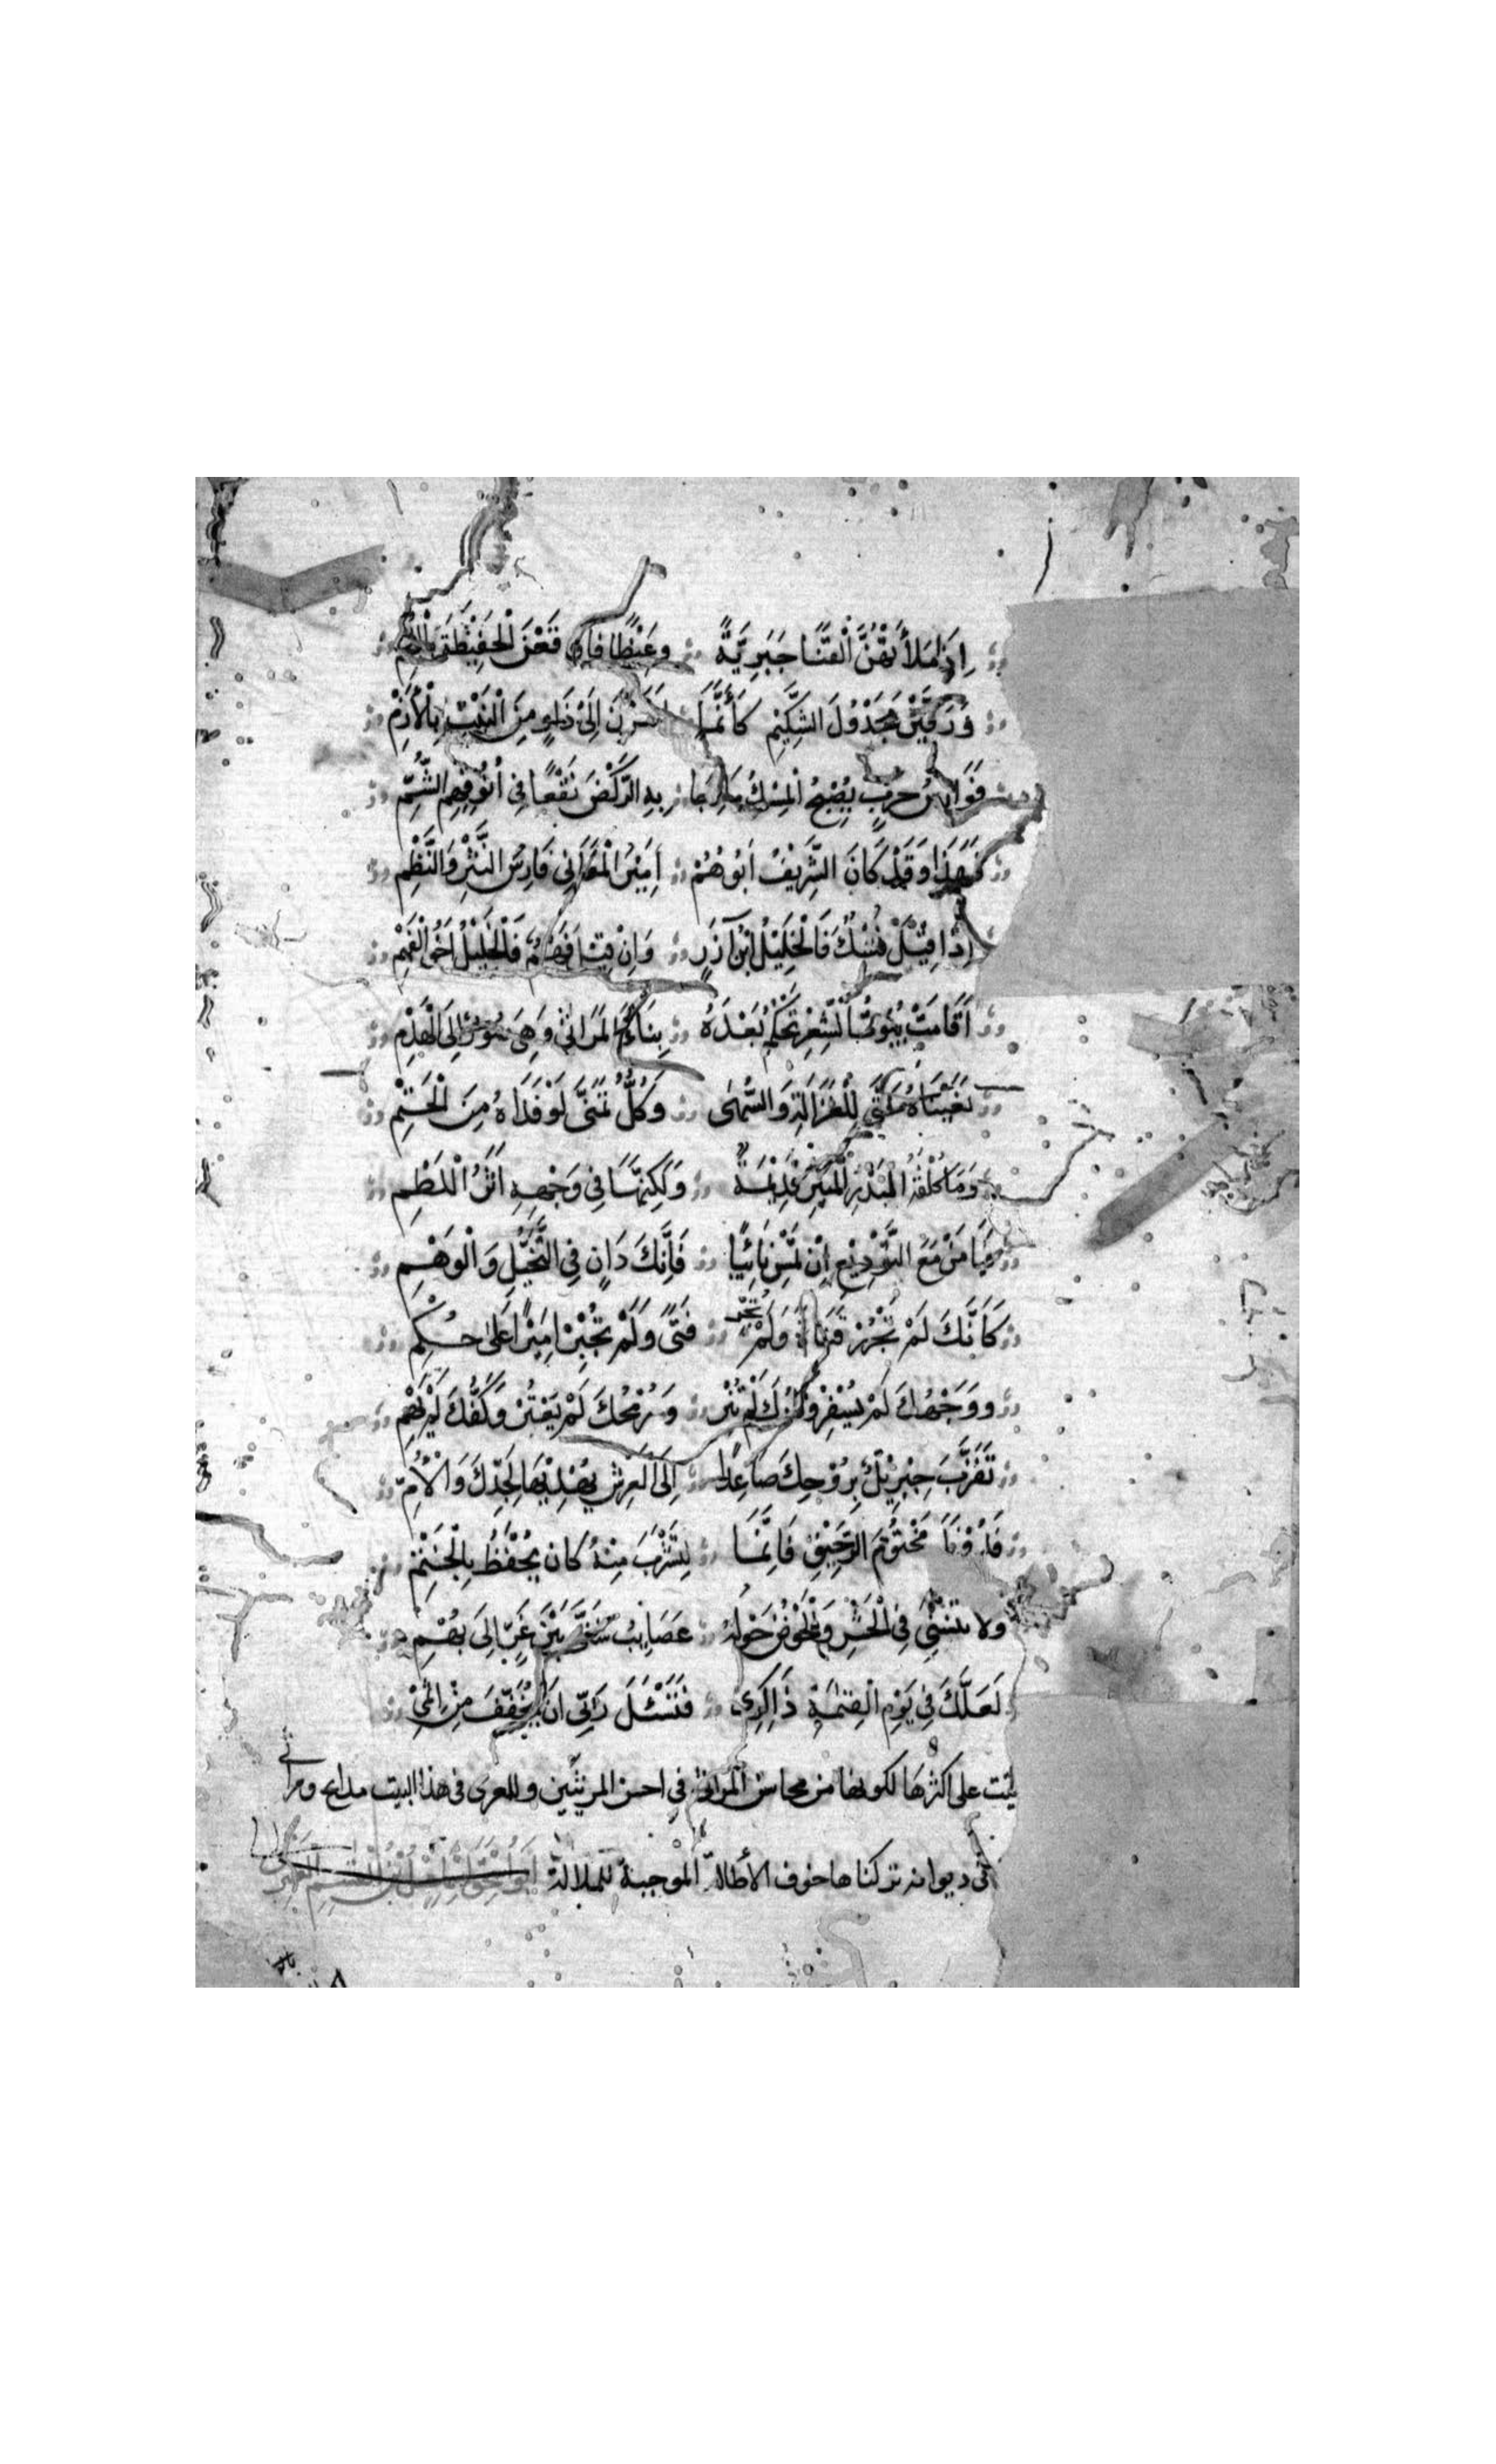 إِذَا مَلَأَتْهُنَّ الْقَنَا جَبَرِيَّةً وَغَيْظًا فَاوْقَعْنَ الْحَفِيْظَةَ
وَرَفَّتْنَ مَجْدُوْلَ الشَّكِيْمِ كَأَنَّمَا اَشَرْنَ اِلَى ذَاوٍ مِنَ النَّبْتِ بِالْأَزْمِ
فَوَارِسُ حَرْبٍ يُصْبِحُ الْمِسْكُ مَازِجًا بِهِ الرَّكْضُ نَقْعًا فِي أُنُوْفِهِمِ الشُّمِّ
فَهَذَا وَقَدْ كَانَ الشَّرِيْفُ اَبُوْهُمْ اَمِيْرَ الْمَعَانِي فَارِسَ النَّثْرِ وَالنَّظْمِ
إِذَا قِيْلَ نُسْكٌ فَالْخَلِيْلُ ابْنُ آزَرٍ وَاِنْ قِيْلَ فَهْمٌ فَالْخَلِيْلُ اَخُو الْفَهْمِ
اَقَامَتْ بُيُوْتُ الشِّعْرِ تُحْكِمُ بَعْدَهُ بِنَاءَ الْمَرَاثِي وَهِيَ صُوْرٌ اِلَى الْهَدْمِ
نَعَيْنَاهُ حَتَّى لِلْغَزَالَةِ وَالسُّهَى وَكُلٌّ تَمَنَّى لَوْ فَدَاهُ مِنَ الْحَتْمِ
وَمَا كُلْفَةُ الْبَدْرِ الْمُنِيْرِ قَدِيْمَةً وَلَكِنَّهَا فِي وَجْهِهِ اَثَرُ اللَّطْمِ
فَيَا مُزْمِعَ التَّوْدِيْعِ اِنْ تُمْسِ نَائِيًا فَاِنَّكَ دَانٍ فِي التَّخَيُّلِ وَالْوَهْمِ
كَأَنَّكَ لَمْ تَجْرُرْ قَنَاةً وَلَمْ تُجِرْ فَتًى وَلَمْ تُجْبِرْ اَمِيْرًا عَلَى حُكْمِ
وَوَجْهُكَ لَمْ يُسْفِرْ وَنَارُكَ لَمْ تُنِرْ وَرُمْحُكَ لَمْ يَعْتُرْ وَكَفُّكَ لَمْ تَهْمِ
تَقَرَّبَ جِبْرِيْلٌ بِرُوْحِكَ صَاعِدًا اِلَى الْعَرْشِ يُهْدِيْهَا لِجَدِّكَ وَالْأُمِّ
فَدُوْنَكَ مَخْتُوْمَ الرَّحِيْقِ فَاِنَّمَا لِتَشْرَبَ مِنْهُ كَانَ يُحْفَظُ بِالْخَتْمِ
وَلَا تَنْسَنِي فِي الْحَشْرِ وَالْحَوْضُ حَوْلَهُ عَصَايِبُ شَتَّى بَيْنَ غُرٍّ اِلَى بُهْمِ
لَعَلَّكَ فِي يَوْمِ الْقِيٰمَةِ ذَاكِرِيْ فَتَسْئَلَ رَبِّيْ اَنْ يُخَفِّفَ مِنْ اِثْمِيْ
على اكثرها لكونها من محاسن المراثي في احسن المرثيين وللمعري في هذا البيت مدايح ومراثي
في ديوانه تركناها خوف الأطالة الموجبة للملالة